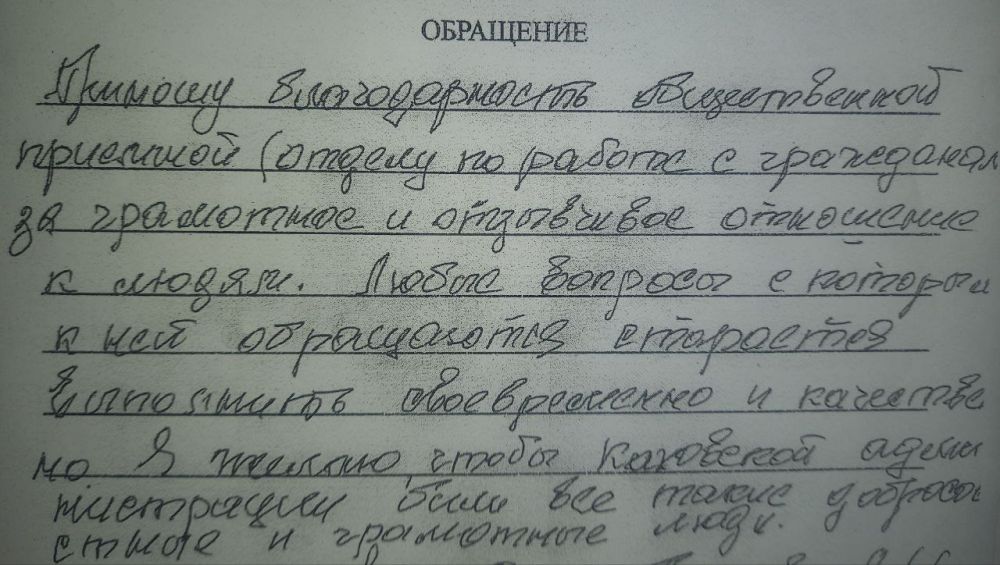 ОБРАЩЕНИЕ
Приношу благодарность общественной
приемной (отделу по работе с граждана
за грамотное и отзывчивое отношение
к людям. Любые вопросы с которым
к ней обращаются старается
выполнить своевременно и качестве
но Я желаю, чтобы Каховской адми
нистрации были все такие добросов
стные и грамотные люди.